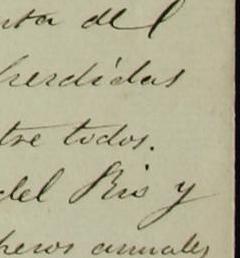 nta del
perdidas
tre todos.
del Rio y
pesos anuales